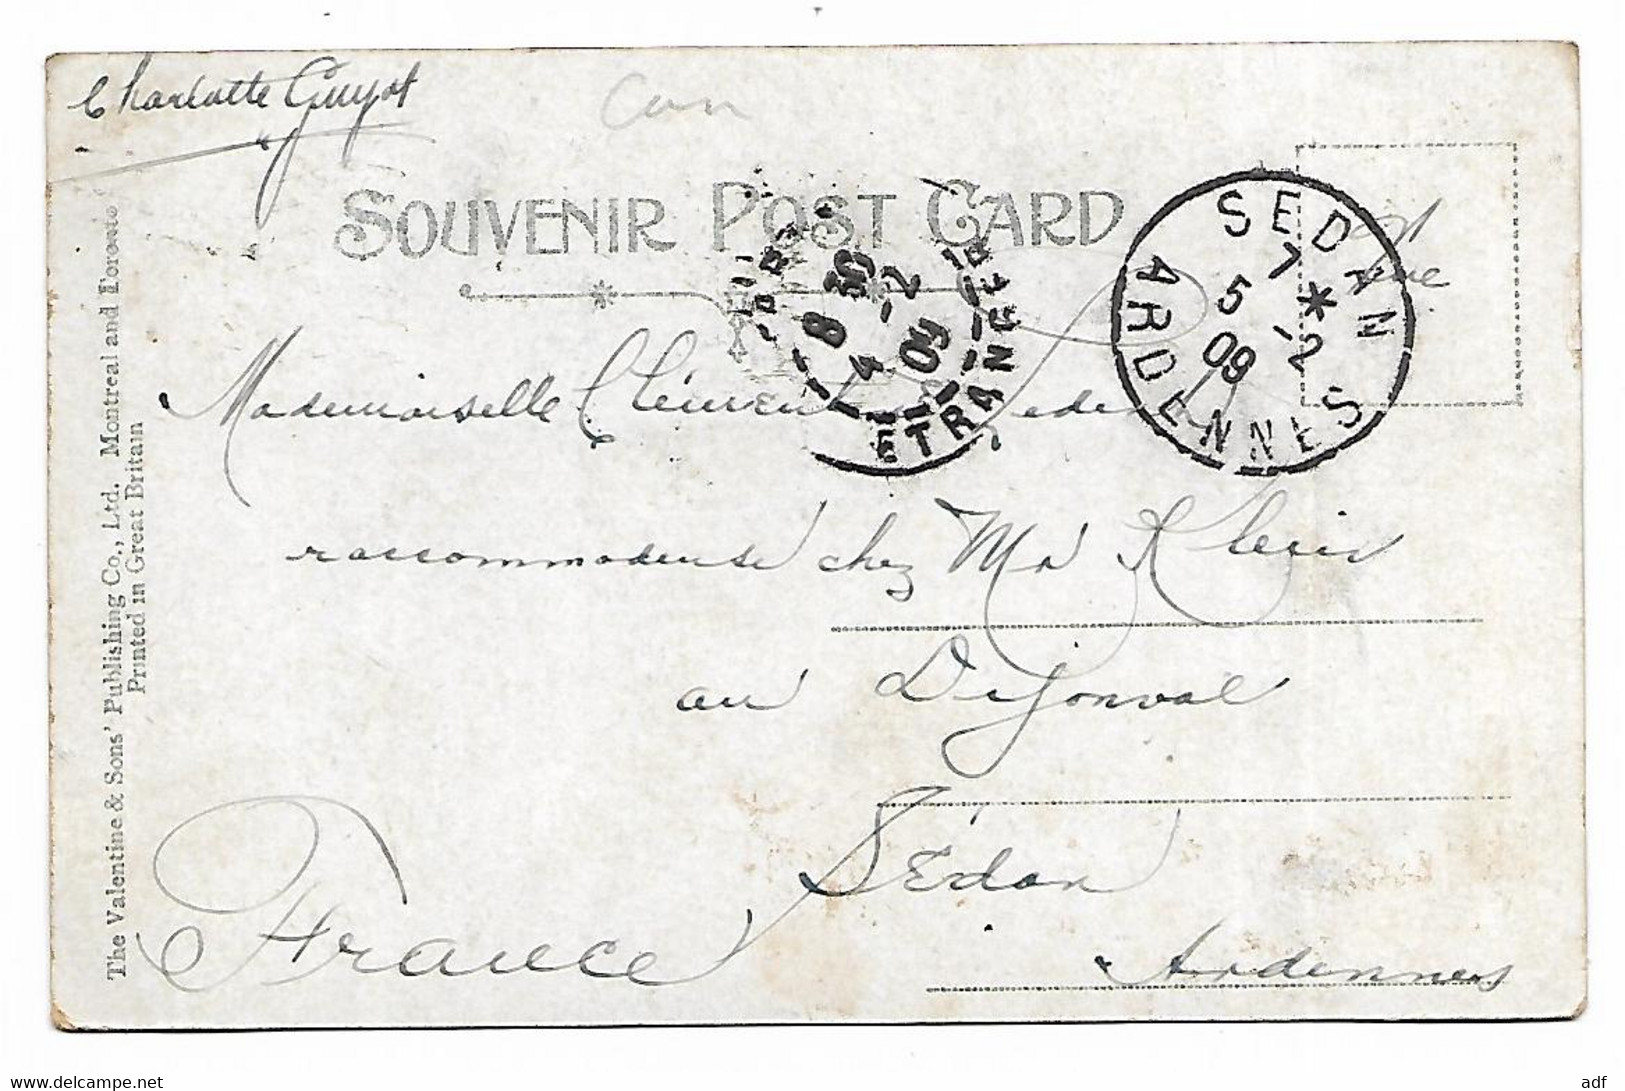 Charlotte Guyot
Can
SOUVENIR POST CARD
SEDAN
7 *
5 -2
09
ARDENNES
8 30
4 -2
09
ETRANGER
Mademoiselle Clément
raccommodeuse chez Mr Klein
au Dijonval
Sédan
Ardennes
France
The Valentine & Sons' Publishing Co., Ltd. Montreal and Toronto
Printed in Great Britain
www.delcampe.net
adf